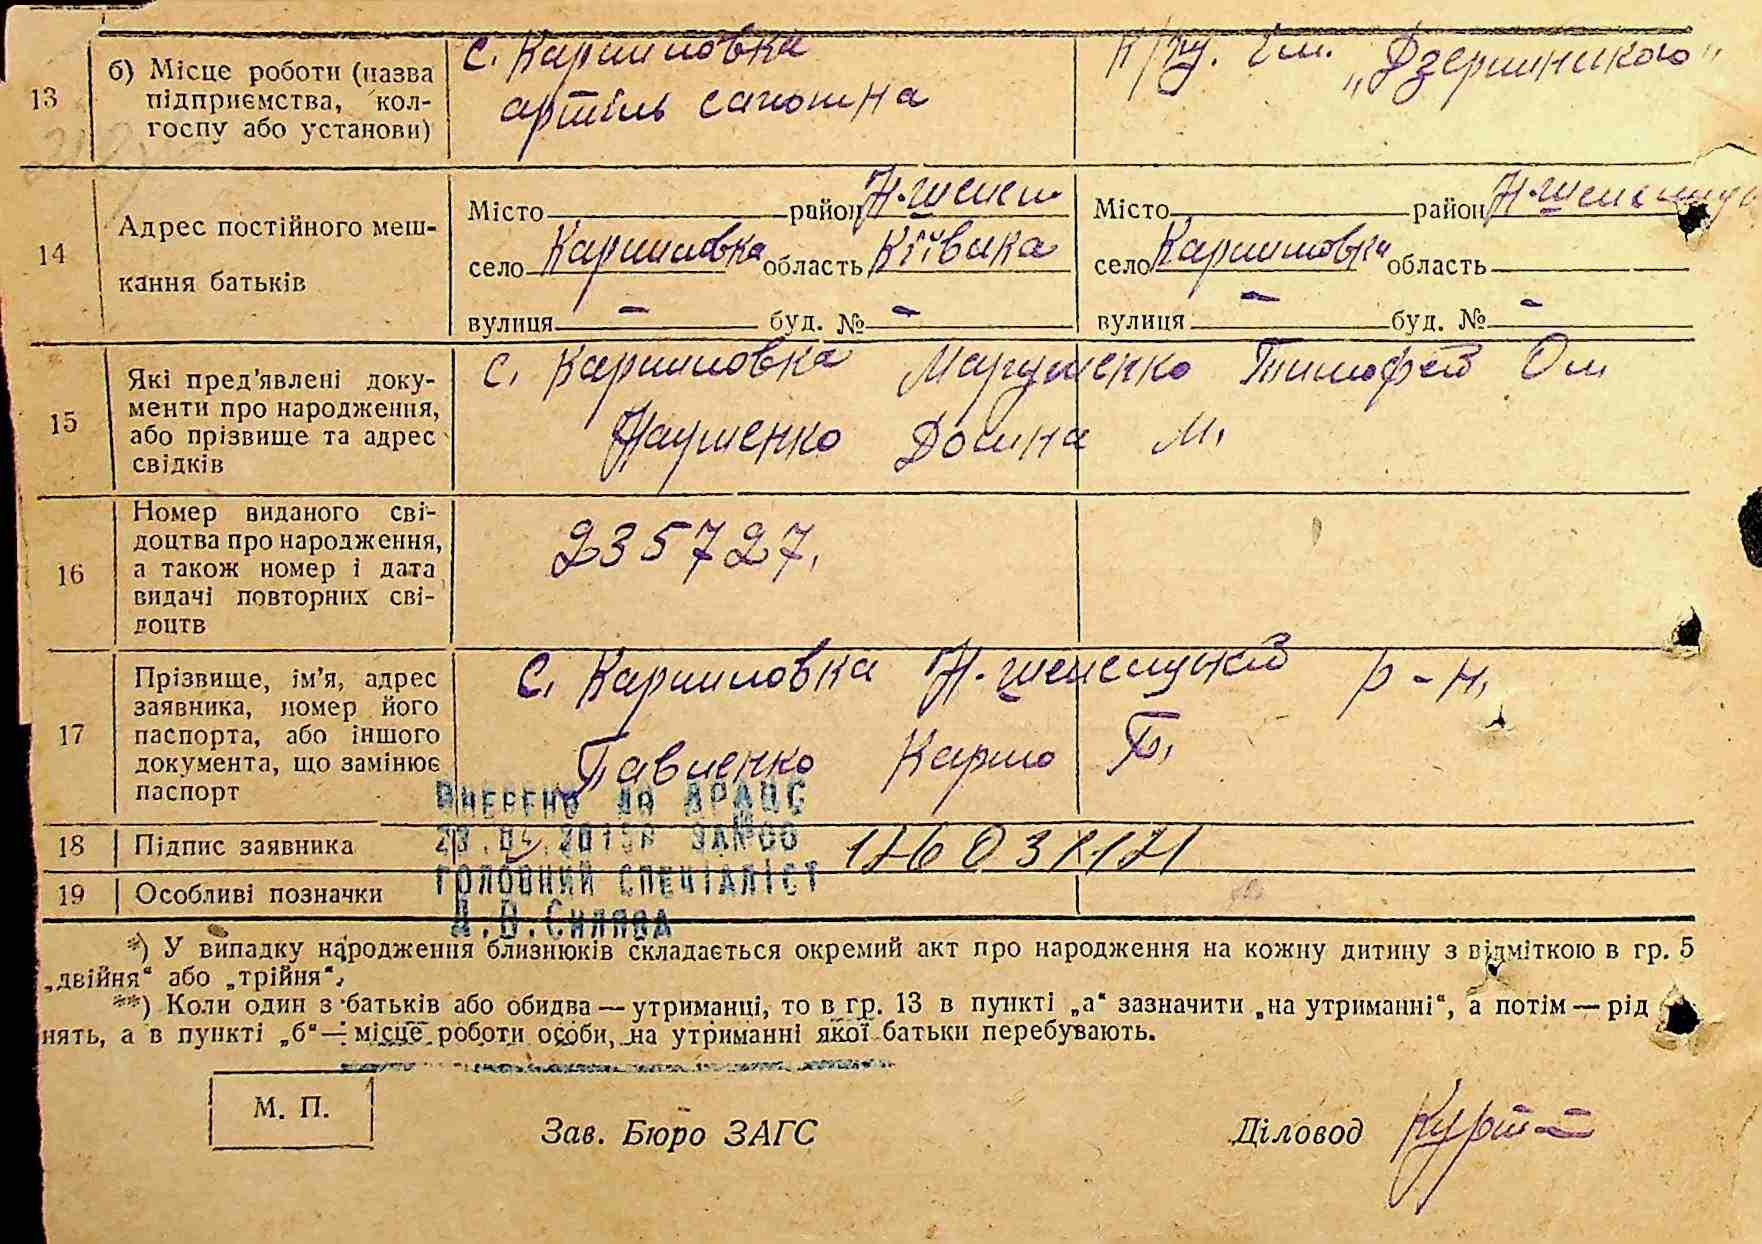 13
б) Місце роботи (назва
підприємства, кол-
госпу або установи)
с. Карпиловка
артіль
к/гу. Ім. „Дзержинского"
14
Адрес постійного меш-
кання батьків
Місто район Н-шепел.
село Карпиловка область Київска
вулиця – буд. № –
Місто район Н-шепелицк
село Карпиловка область
вулиця – буд. № –
15
Які пред'явлені доку-
менти про народження,
або прізвище та адрес
свідків
с. Карпиловка Тимофей Ом
Домна М.
16
Номер виданого сві-
доцтва про народження,
а також номер і дата
видачі повторних сві-
доцтв
235727.
17
Прізвище, ім'я, адрес
заявника, номер його
паспорта, або іншого
документа, що замінює
паспорт
с. Карпиловка Н-шепелицкий р-н,
Павленко Карпо Т.
18
Підпис заявника
19
Особливі позначки
ВНЕРЕНО ДО ДРАЦС
ГОЛОВНИЙ СПЕЦІАЛІСТ
*) У випадку народження близнюків складається окремий акт про народження на кожну дитину з відміткою в гр. 5
„двійня“ або „трійня“.
**) Коли один з батьків або обидва — утриманці, то в гр. 13 в пункті „а“ зазначити „на утриманні“, а потім — рід
нять, а в пункті „б“ — місце роботи особи, на утриманні якої батьки перебувають.
М. П.
Зав. Бюро ЗАГС
Діловод